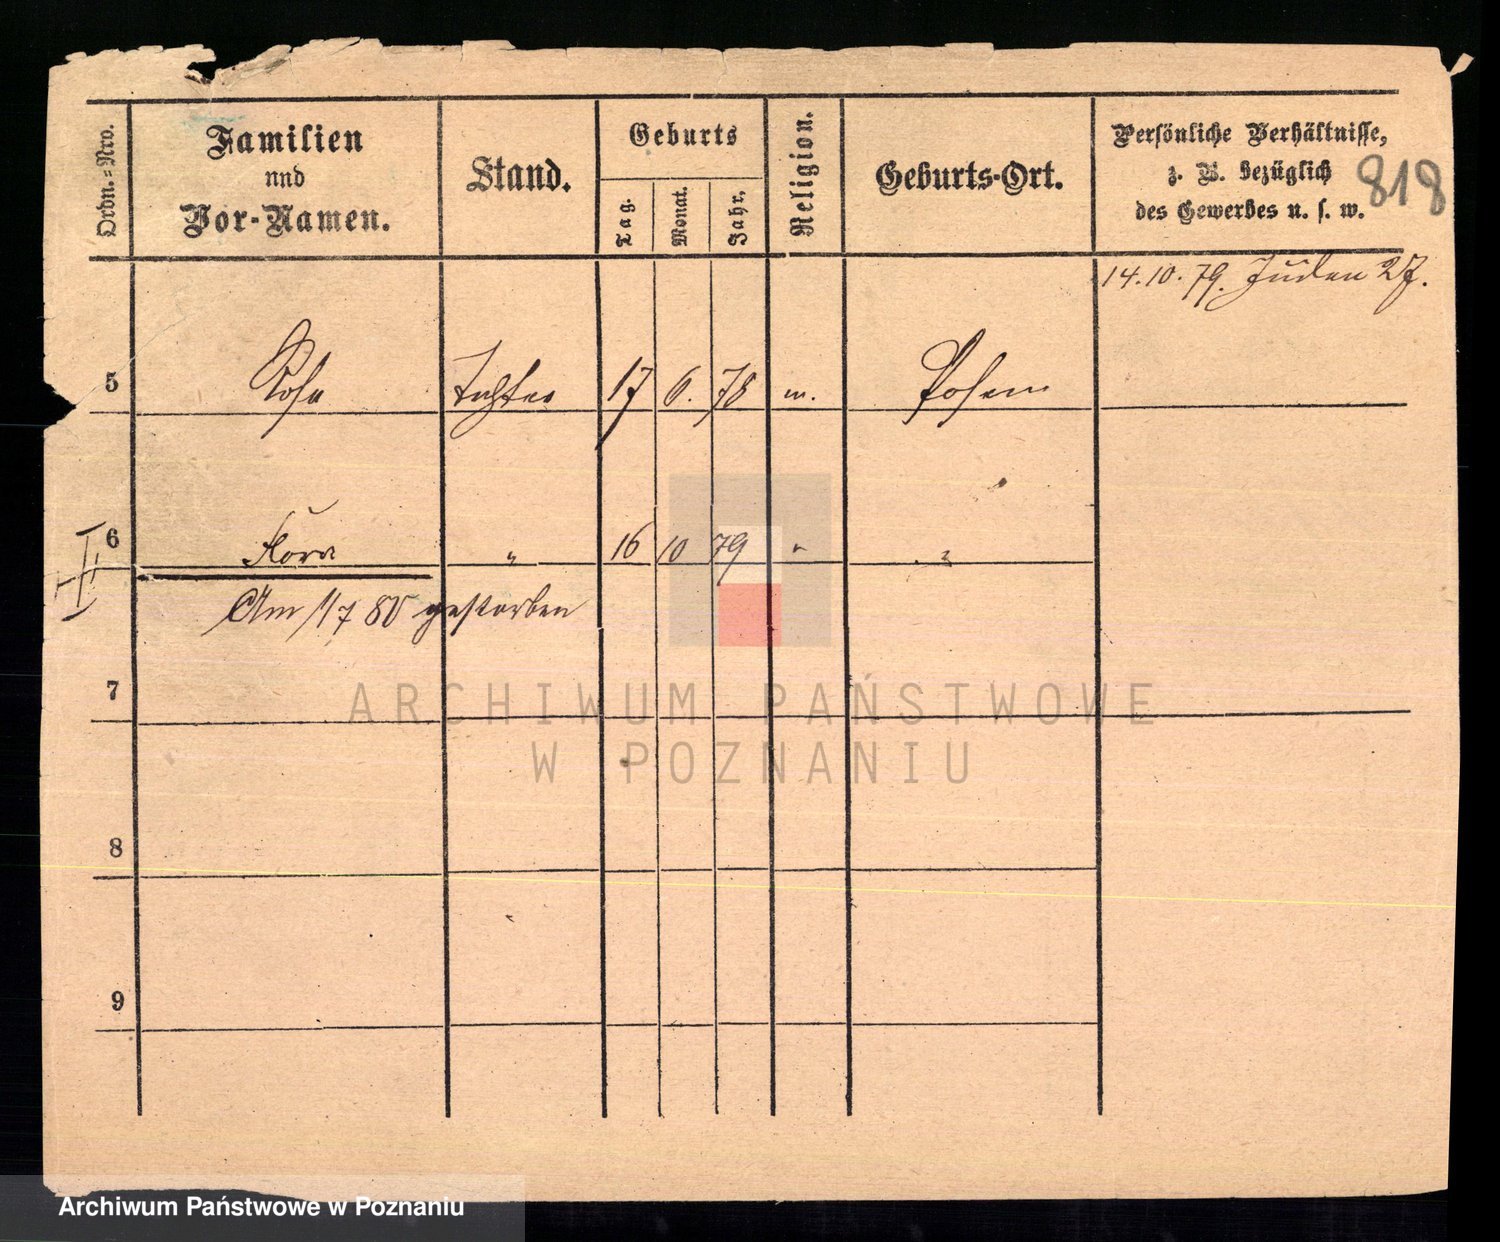 Ordn.=Nro.
Familien
und
Vor-Namen.
Stand.
Geburts
Tag.
Monat.
Jahr.
Religion.
Geburts-Ort.
Persönliche Verhältnisse,
z. B. bezüglich
des Gewerbes u. s. w.
818
14.10.79. Juden 27.
5 Rosa Tochter 17 6. 78 m. Posen
6 Flora " 16 10 79 " "
II
Am 1/7 80 gestorben
7
ARCHIWUM PAŃSTWOWE
W POZNANIU
8
9
Archiwum Państwowe w Poznaniu